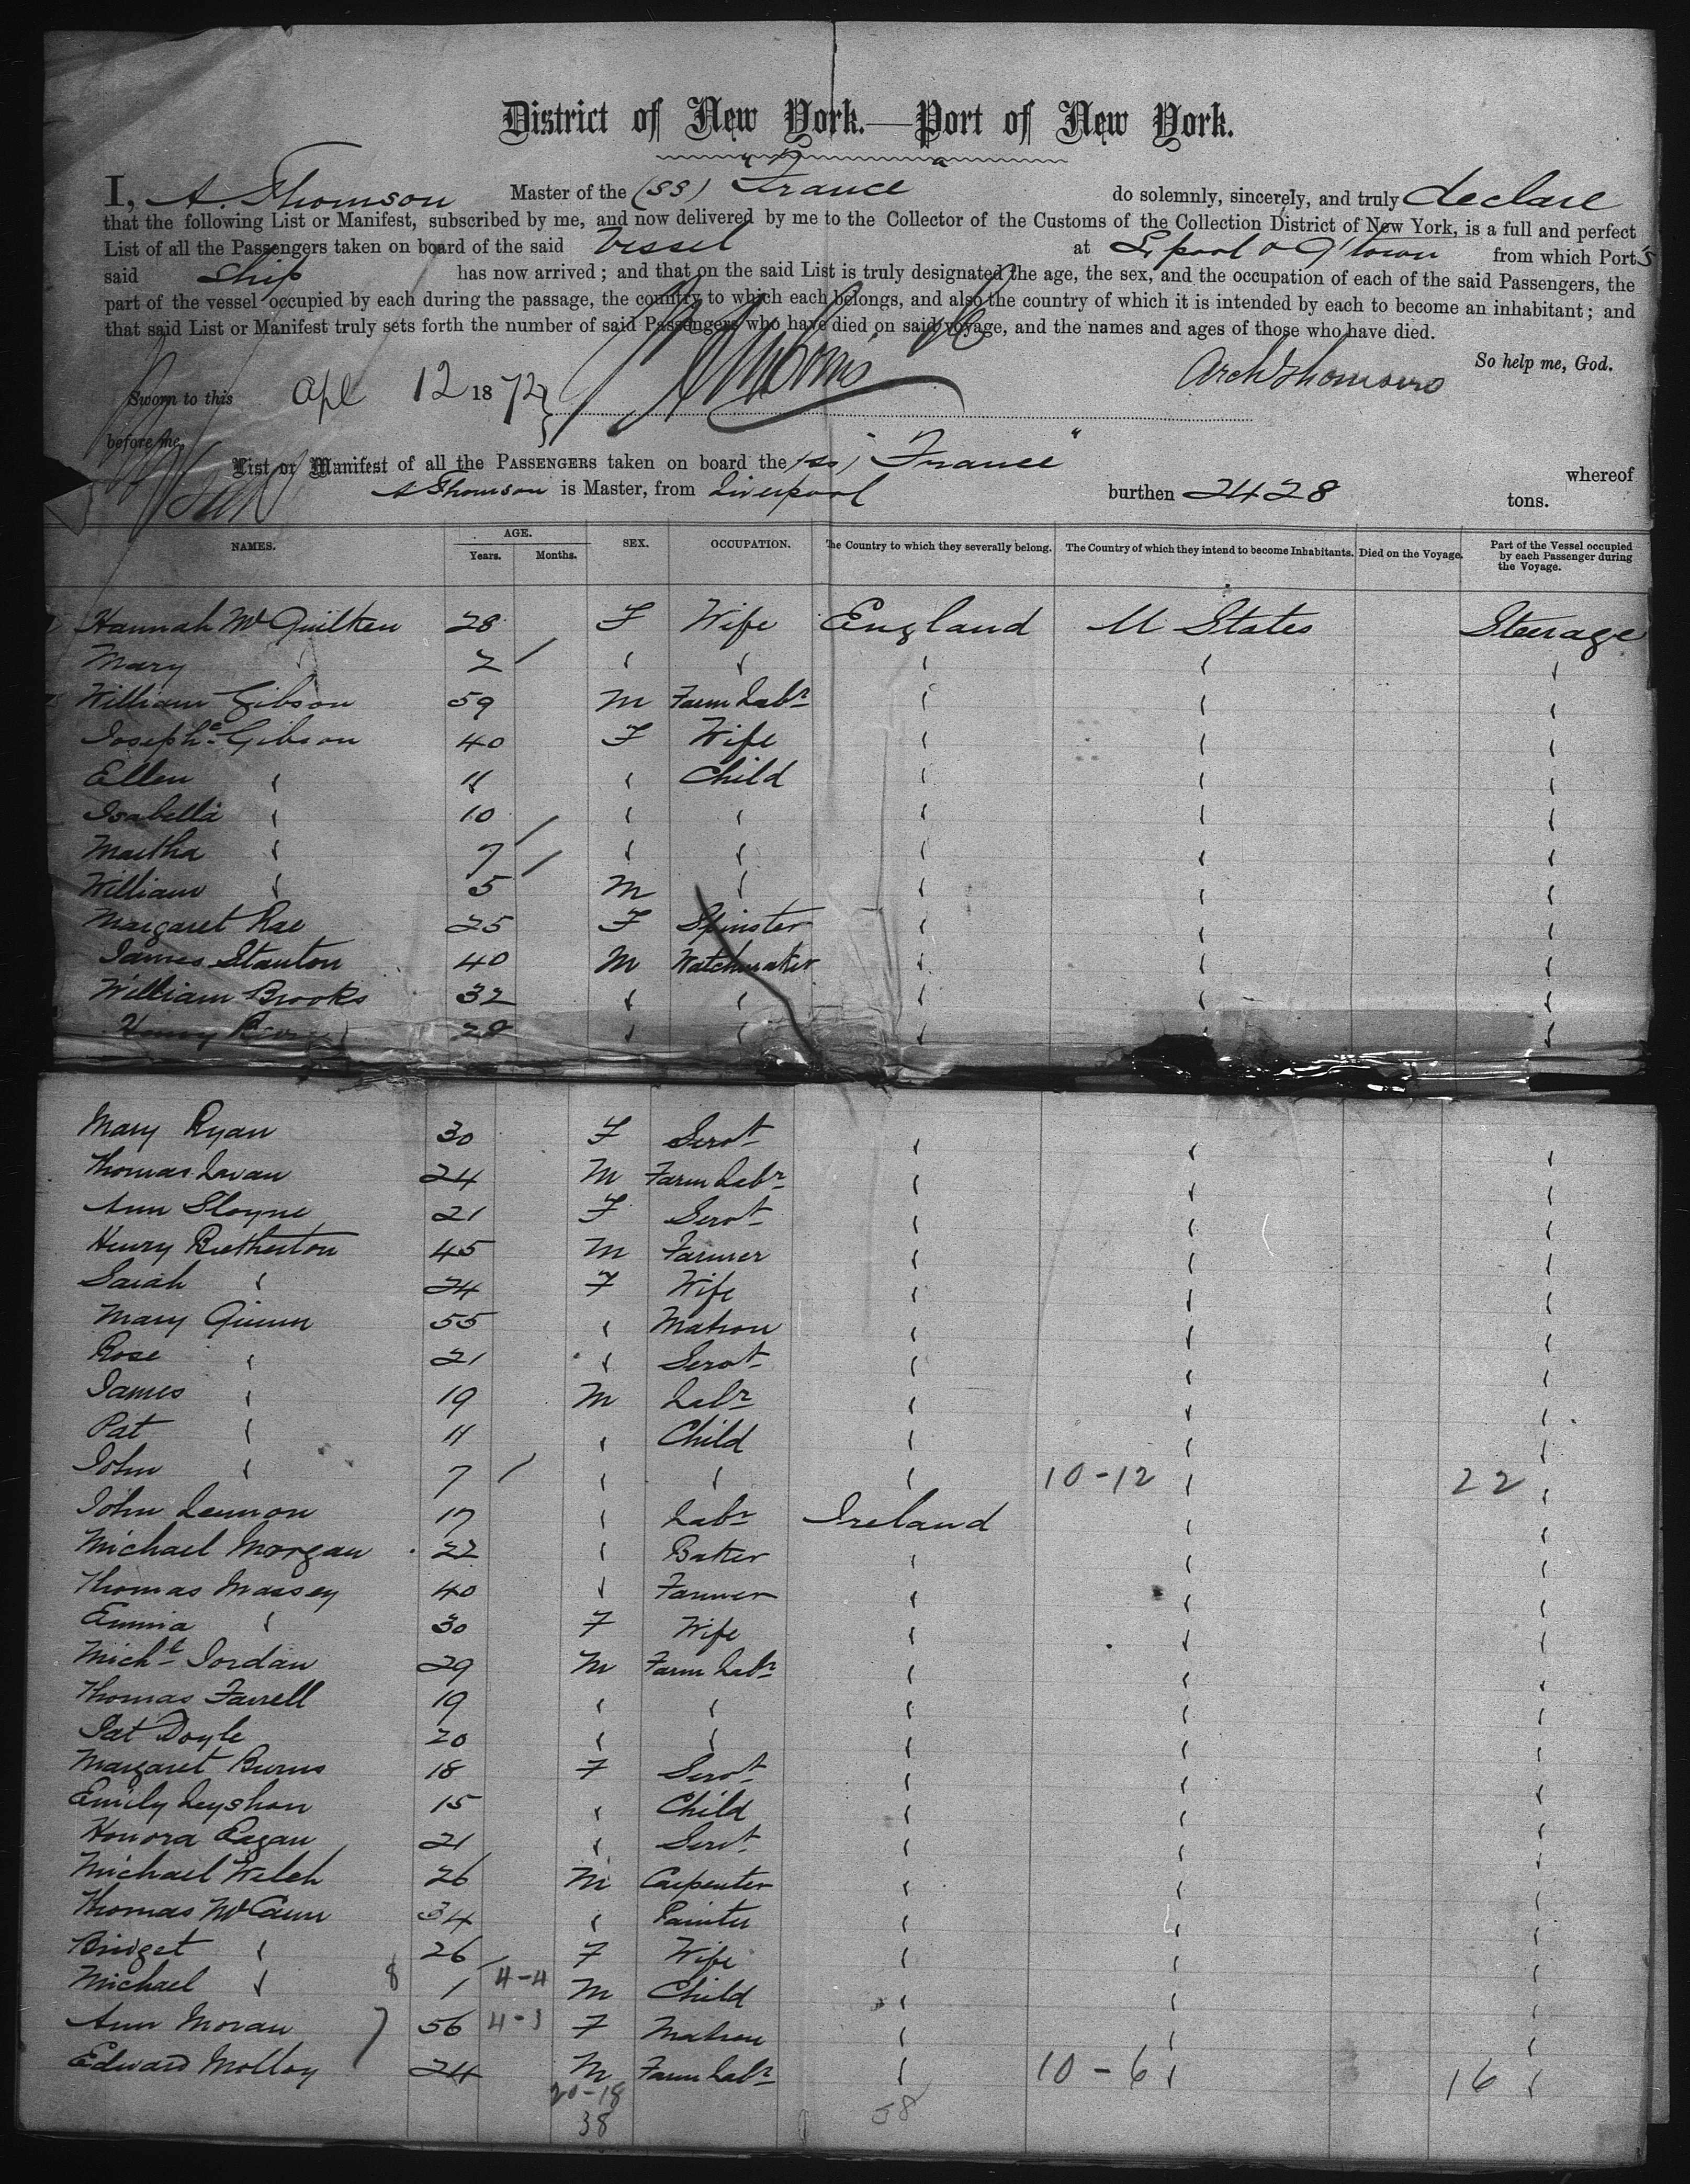 District of New York.—Port of New York.
I, A. Thomson Master of the (SS) "France" do solemnly, sincerely, and truly declare
that the following List or Manifest, subscribed by me, and now delivered by me to the Collector of the Customs of the Collection District of New York, is a full and perfect
List of all the Passengers taken on board of the said Vessel at L'pool & Q'town from which Port's
said Ship has now arrived; and that on the said List is truly designated the age, the sex, and the occupation of each of the said Passengers, the
part of the vessel occupied by each during the passage, the country to which each belongs, and also the country of which it is intended by each to become an inhabitant; and
that said List or Manifest truly sets forth the number of said Passengers who have died on said voyage, and the names and ages of those who have died.
So help me, God.
Sworn to this Apl 12 1872 Arch Thomson
before me
List or Manifest of all the PASSENGERS taken on board the (ss) "France" whereof
A Thomson is Master, from Liverpool burthen 2428 tons.
NAMES. AGE. Years. Months. SEX. OCCUPATION. The Country to which they severally belong. The Country of which they intend to become Inhabitants. Died on the Voyage. Part of the Vessel occupied by each Passenger during the Voyage.
Hannah McQuilken 28 F Wife England U States Steerage
Mary " 2 / " " " " "
William Gibson 59 M Farm Labr " " "
Josephe Gibson 40 F Wife " " "
Ellen " 11 " Child " " "
Isabella " 10 " " " " "
Martha " 7 / " " " " "
William " 5 / M " " " "
Margaret Rae 25 F Spinster " " "
James Stanton 40 M Watchmaker " " "
William Brooks 32 " " " " "
Henry 28 " " " "
Mary Ryan 30 F Servt " " "
Thomas Lavan 24 M Farm Labr " " "
Ann Sloyne 21 F Servt " " "
Henry Bretherton 45 M Farmer " " "
Sarah " 24 F Wife " " "
Mary Quinn 55 " Matron " " "
Rose " 21 " Servt " " "
James " 19 M Labr " " "
Pat " 11 " Child " " "
John " 7 / " " " 10-12 " 22 "
John Lennon 17 " Labr Ireland " "
Michael Morgan 22 " Baker " " "
Thomas Massey 40 " Farmer " " "
Emma " 30 F Wife " " "
Michl Jordan 29 M Farm Labr " " "
Thomas Farrell 19 " " " " "
Pat Doyle 20 " " " " "
Margaret Burns 18 F Servt " " "
Emily Leyshon 15 " Child " " "
Honora Eagan 21 " Servt " " "
Michael Welch 26 M Carpenter " " "
Thomas McCann 34 " Painter " " "
Bridget " 26 F Wife " " "
Michael " 8 1 4-4 M Child " " "
Ann Moran 7 56 4-3 F Matron " " "
Edward Molloy 24 M Farm Labr " 10-6 " 16 "
20-18
38 38